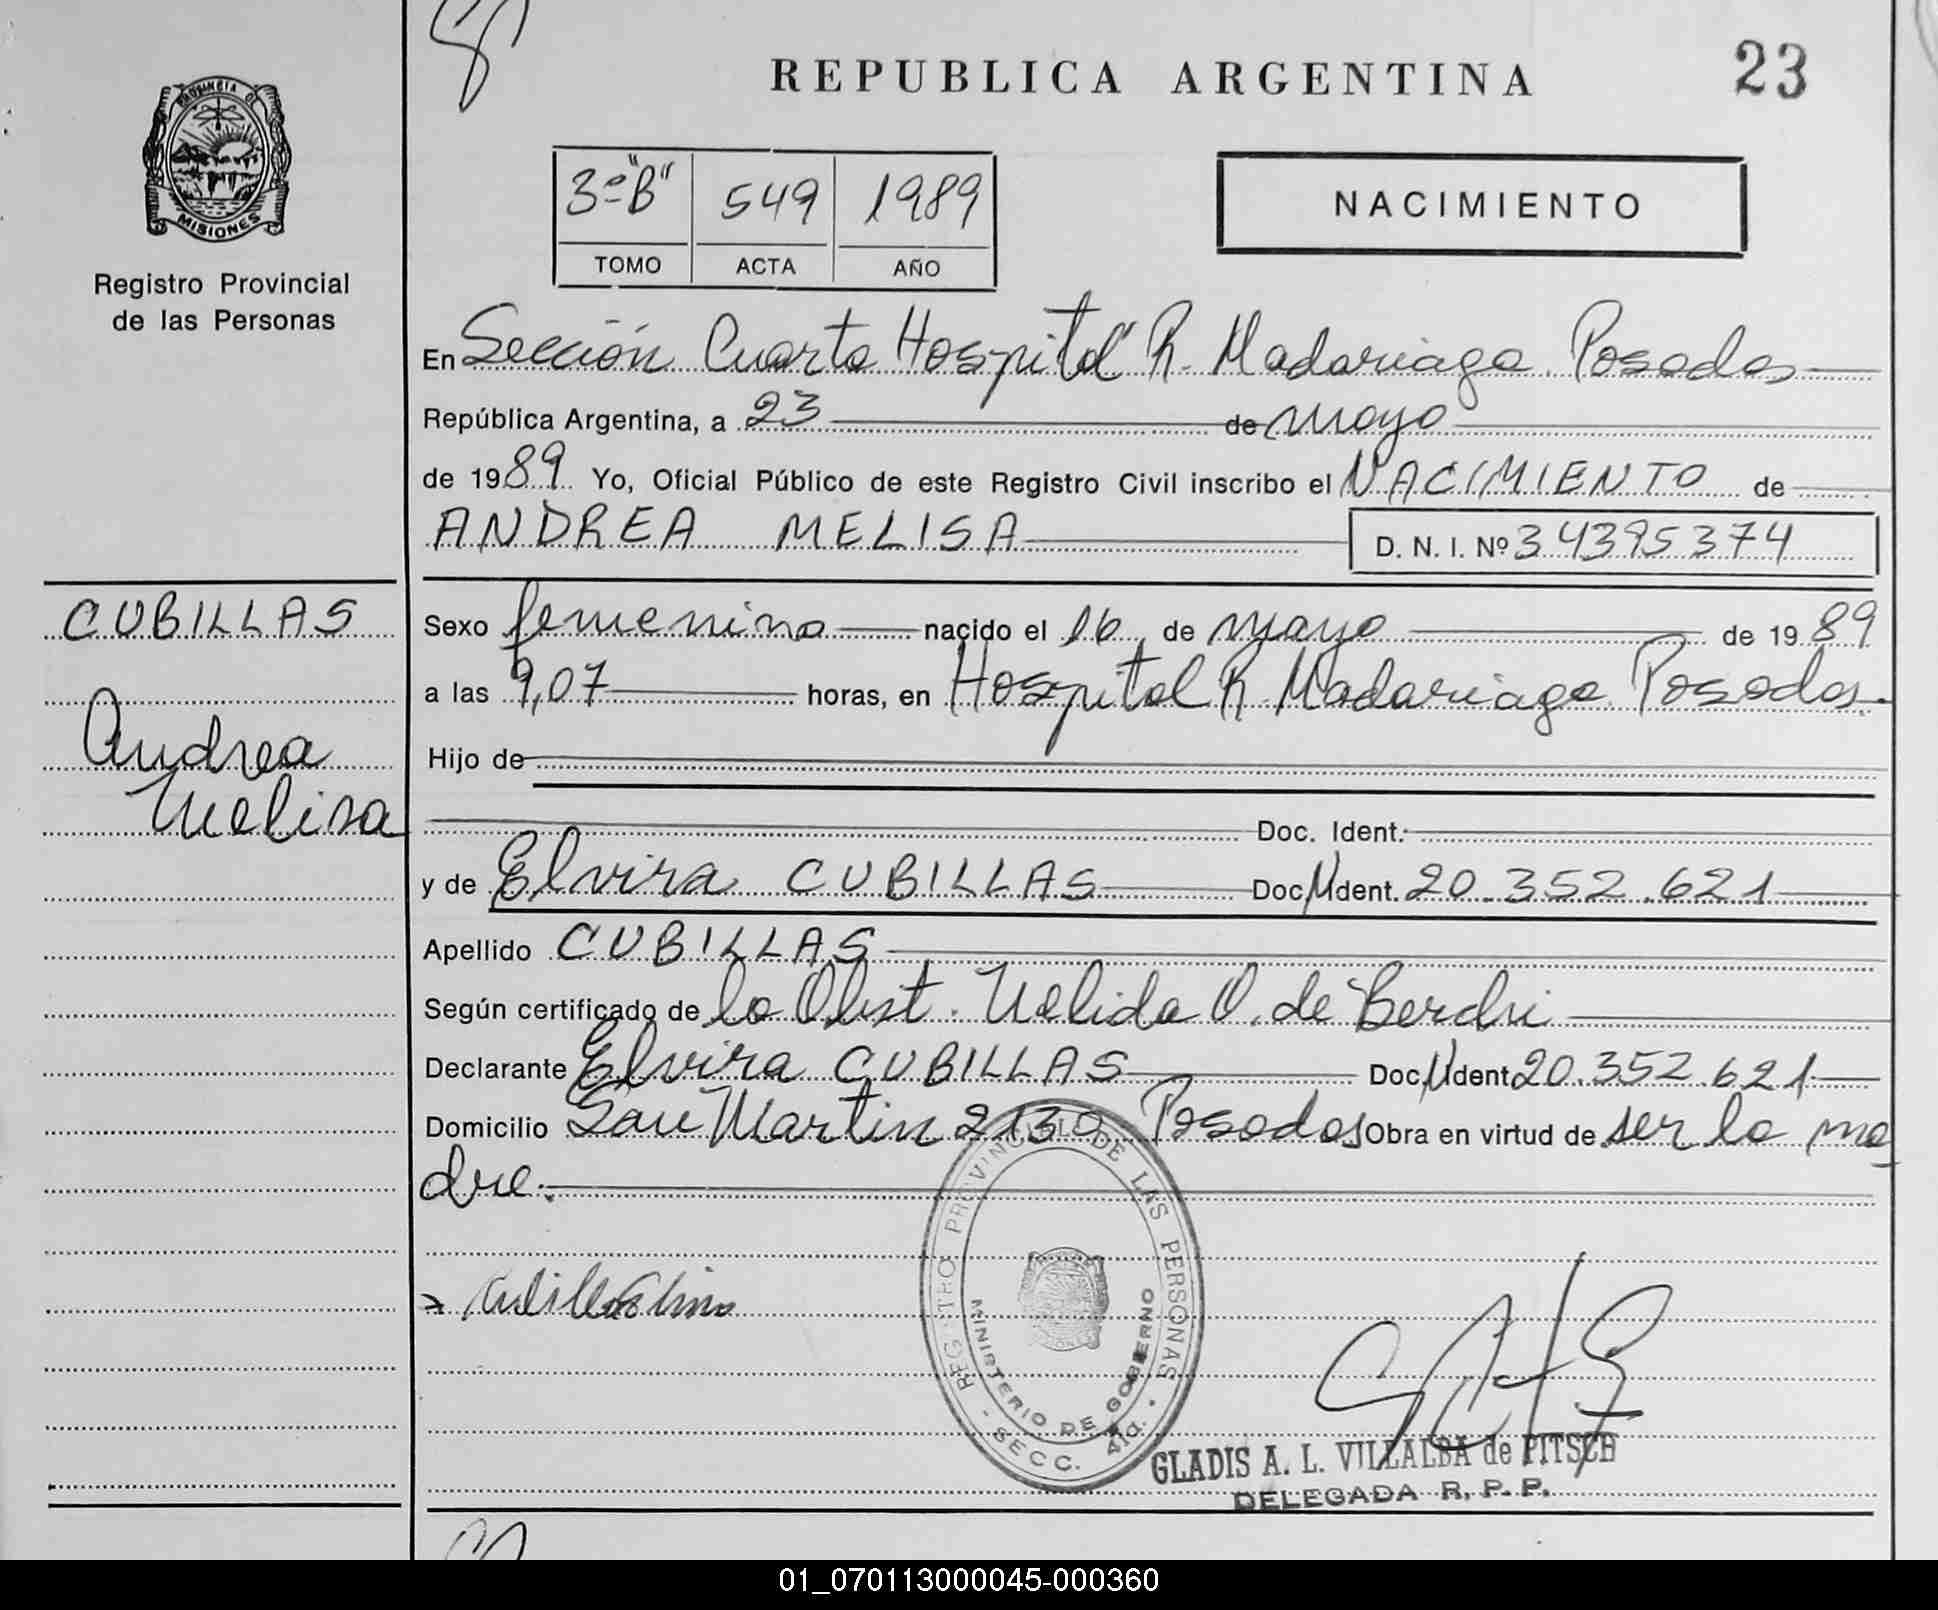 REPUBLICA ARGENTINA
23
PROVINCIA DE
MISIONES
Registro Provincial
de las Personas
3º "B" 549 1989
TOMO ACTA AÑO
NACIMIENTO
En Sección Cuarta Hospital R. Madariaga. Posadas
República Argentina, a 23 de mayo
de 1989 Yo, Oficial Público de este Registro Civil inscribo el NACIMIENTO de
ANDREA MELISA D. N. I. Nº 34395374
CUBILLAS
Andrea
Melisa
Sexo femenino nacido el 16 de mayo de 1989
a las 9,07 horas, en Hospital R. Madariaga. Posadas.
Hijo de
Doc. Ident.
y de Elvira CUBILLAS Doc. N Ident. 20.352.621
Apellido CUBILLAS
Según certificado de la Obst. Nelida O. de
Declarante Elvira CUBILLAS Doc. N Ident 20.352.621
Domicilio San Martin 2130 Posadas Obra en virtud de ser la ma
dre.
REGISTRO PROVINCIAL DE LAS PERSONAS
MINISTERIO DE GOBIERNO
- SECC. 4ta. -
GLADIS A. L. VILLALBA de PITSCH
DELEGADA R. P. P.
01_070113000045-000360